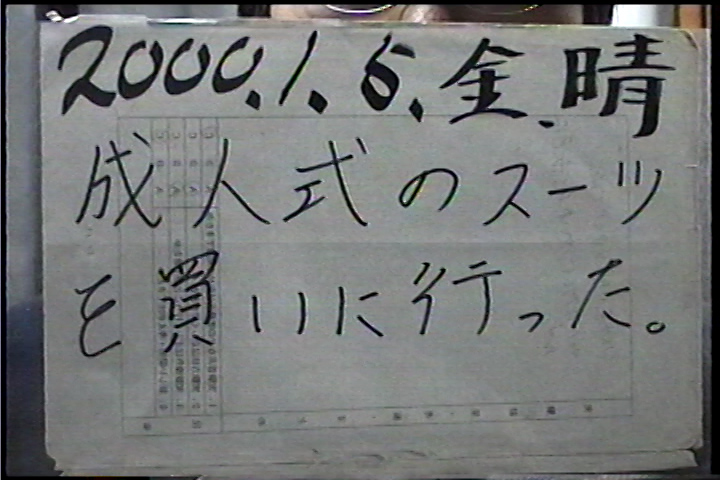 2000.1.6.金.晴
成人式のスーツ
を買いに行った。